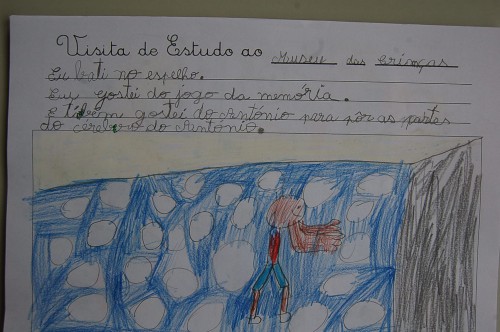 Visita de Estudo ao Museu das Crianças
Eu bati no espelho.
Eu gostei do jogo da memória.
E tibém gostei do António para pôr as partes
do cérebro do António.